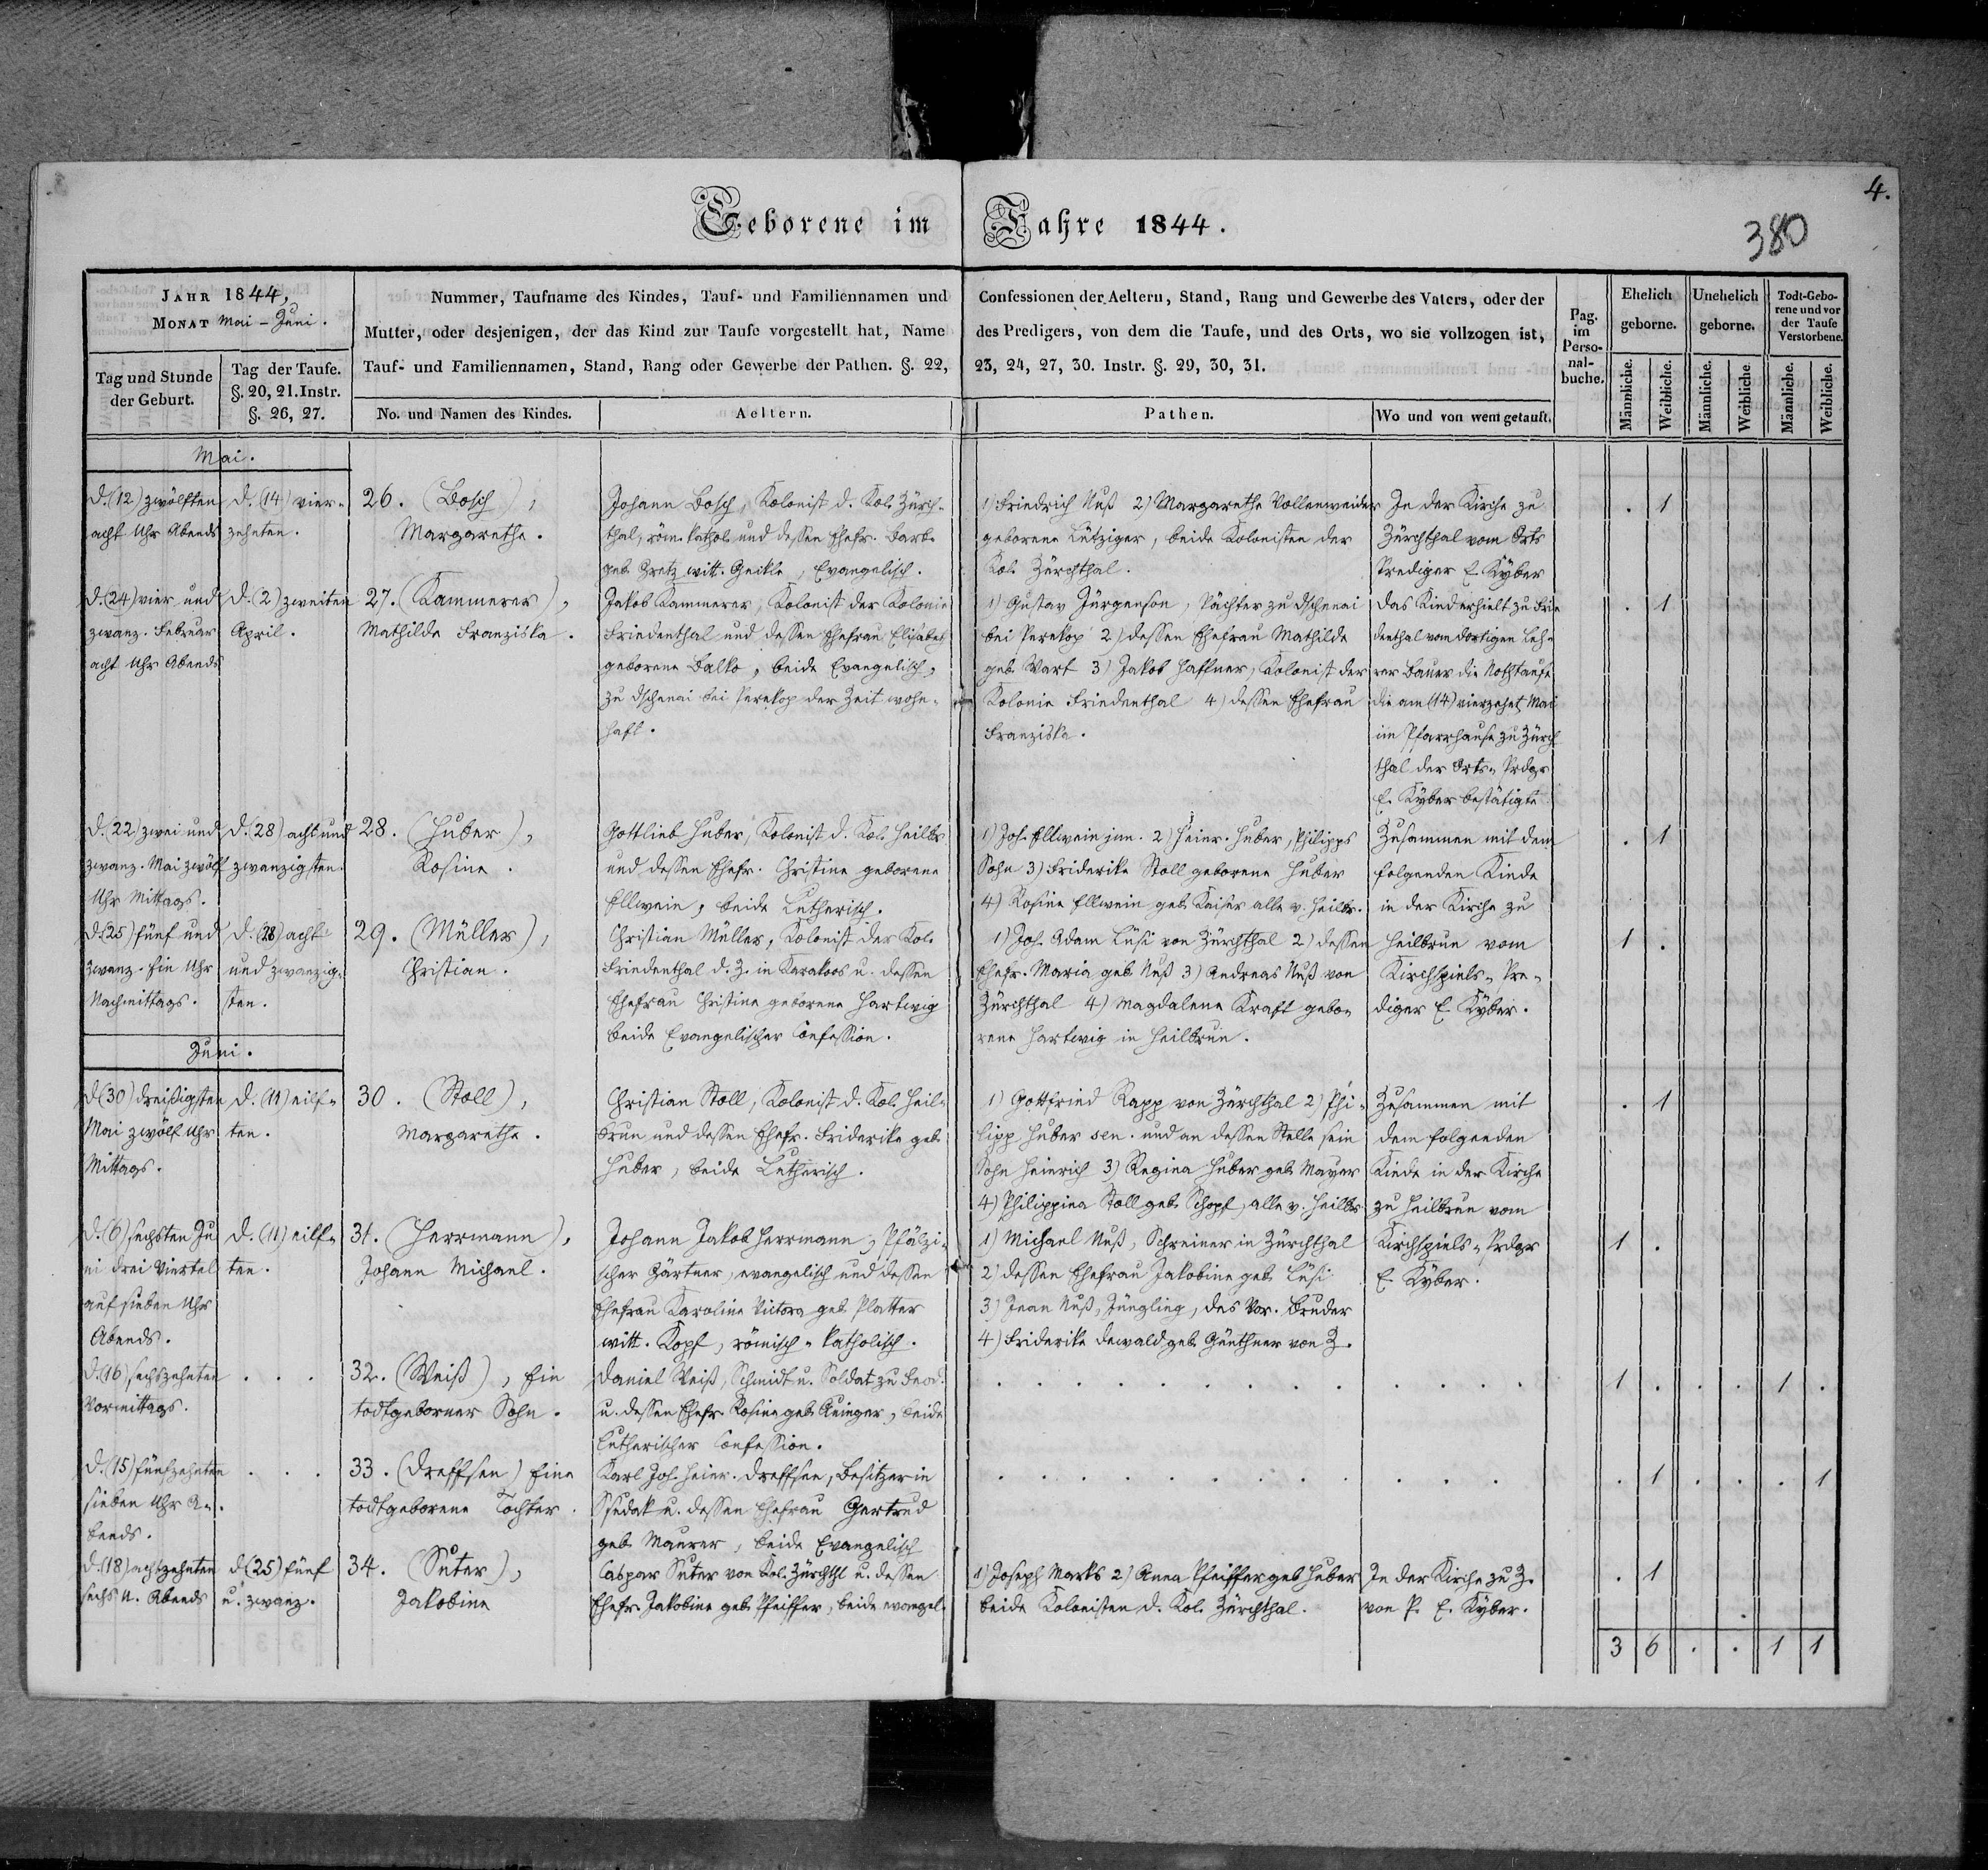 4.
380
Geborene im Jahre 1844.
Jahr 1844,
Monat Mai - Juni.
Tag und Stunde
der Geburt.
Tag der Taufe.
§. 20, 21. Instr.
§. 26, 27.
Nummer, Taufname des Kindes, Tauf- und Familiennamen und
Mutter, oder desjenigen, der das Kind zur Taufe vorgestellt hat, Name
Tauf- und Familiennamen, Stand, Rang oder Gewerbe der Pathen. §. 22,
No. und Namen des Kindes.
Aeltern.
Confessionen der Aeltern, Stand, Rang und Gewerbe des Vaters, oder der
des Predigers, von dem die Taufe, und des Orts, wo sie vollzogen ist,
23, 24, 27, 30. Instr. §. 29, 30, 31.
Pathen.
Wo und von wem getauft.
Pag.
im
Perso-
nal-
buche.
Ehelich
geborne.
Unehelich
geborne.
Todt-Gebo-
rene und vor
der Taufe
Verstorbene.
Männliche.
Weibliche.
Männliche.
Weibliche.
Männliche.
Weibliche.
Mai.
d. (12) zwölften
acht Uhr Abends
d. (14) vier-
zehnten.
26. (Bosch),
Margarethe.
Johann Bosch, Kolonist d. Kol. Zürch-
thal, röm. kathol. und dessen Ehefr. Barb.
geb. Gretz witt. Geikle, Evangelisch.
1) Friedrich Nuß 2) Margarethe Vollenweider
geborene Lütziger, beide Kolonisten der
Kol. Zürchthal.
In der Kirche zu
Zürchthal vom Orts
Prediger E. Kyber
. 1
d. (24) vier und
zwanz. Februar
acht Uhr Abends
d. (2) zweiten
April.
27. (Kammerer),
Mathilde Franziska.
Jakob Kammerer, Kolonist der Kolonie
Friedenthal und dessen Ehefrau Elisabet
geborene Balko, beide Evangelisch,
zu Dschenai bei Perekop der Zeit wohn-
haft.
1) Gustav Jürgenson, Pächter zu Dschenai
bei Perekop 2) dessen Ehefrau Mathilde
geb. Warf 3) Jakob Haffner, Kolonist der
Kolonie Friedenthal 4) dessen Ehefrau
Franziska.
das Kind erhielt zu Frie
denthal vom dortigen Leh-
rer Bauer die Nothtaufe
die am (14) vierzehnt. Mai
im Pfarrhause zu Zürch
thal der Orts-Prdgr
E. Kyber bestätigte
. 1
d. (22) zwei und
zwanz. Mai zwölf
Uhr Mittags.
d. (28) acht und
zwanzigsten.
28. (Huber),
Rosine.
Gottlieb Huber, Kolonist d. Kol. Heilbr
und dessen Ehefr. Christine geborene
Ellwein, beide Lutherisch.
1) Joh. Ellwein jun. 2) Heinr. Huber, Philipps
Sohn 3) Friderike Stoll geborene Huber
4) Rosine Ellwein geb. Kaiser alle v. Heilbr.
Zusammen mit dem
folgenden Kinde
in der Kirche zu
. 1
d. (25) fünf und
zwanz. Ein Uhr
Nachmittags.
d. (28) acht
und zwanzig-
sten.
29. (Müller),
Christian.
Christian Müller, Kolonist der Kol.
Friedenthal d. Z. in Karakoos u. dessen
Ehefrau Christine geborene Hartwig
beide Evangelischer Confession.
1) Joh. Adam Lüsi von Zürchthal 2) dessen
Ehefr. Maria geb. Nuß 3) Andreas Nuß von
Zürchthal 4) Magdalena Kraft gebo-
rene Hartwig in Heilbrun.
Heilbrun vom
Kirchspiels-Pre-
diger E. Kyber.
1 .
Juni.
d (30) dreißigsten
Mai zwölf Uhr
Mittags.
d. (11) eilf-
ten.
30. (Stoll),
Margarethe.
Christian Stoll, Kolonist d. Kol. Heil-
brun und dessen Ehefr. Friderike geb.
Huber, beide Lutherisch.
1) Gottfried Rapp von Zürchthal 2) Phi-
lipp Huber sen. und an dessen Stelle sein
Sohn Heinrich 3) Regina Huber geb. Mayer
4) Philippina Stoll geb. Schopf, alle v. Heilbr
Zusammen mit
dem folgenden
Kinde in der Kirche
zu Heilbrun vom
. 1
d. (6) sechsten Ju
ni drei Viertel
auf sieben Uhr
Abends.
d. (11) eilf-
ten.
31. (Herrmann),
Johann Michael.
Johann Jakob Herrmann, Pfälzi-
scher Gärtner, evangelisch und dessen
Ehefrau Karoline Victora geb. Platter
witt. Kopf, römisch-katholisch.
1) Michael Nuß, Schreiner in Zürchthal
2) dessen Ehefrau Jakobine geb. Lüsi
3) Jean Nuß, Jüngling, des Vor. Bruder
4) Friderike Dewald geb. Günthner von Z.
Kirchspiels-Prdgr
E. Kyber.
1 .
d. (16) sechszehnten
Vormittags.
. . .
32. (Weiß), Ein
todtgeborner Sohn.
Daniel Weiß, Schmidt u. Soldat zu Feod.
u. dessen Ehefr. Rosine geb. Kuinger, beide
Lutherischer Confession.
1 . . . 1 .
d. (15) fünfzehnten
sieben Uhr A-
bends.
. . .
33. (Dreffsen) Eine
todtgeborene Tochter.
Karl Joh. Heinr. Dreffsen, Besitzer in
Ssudak u. dessen Ehefrau Gertrud
geb. Maurer, beide Evangelisch
. 1 . . . 1
d. (18) achtzehnten
sechs U. Abends
d (25) fünf
u. zwanz.
34. (Suter),
Jakobine
Caspar Suter von Kol. Zürchthl u. dessen
Ehefr. Jakobine geb. Pfeiffer, beide evangel.
1) Joseph Marks 2) Anna Pfeiffer geb Huber
beide Kolonisten d. Kol. Zürchthal.
In der Kirche zu Z.
von P. E. Kyber.
. 1
3 6 . . 1 1